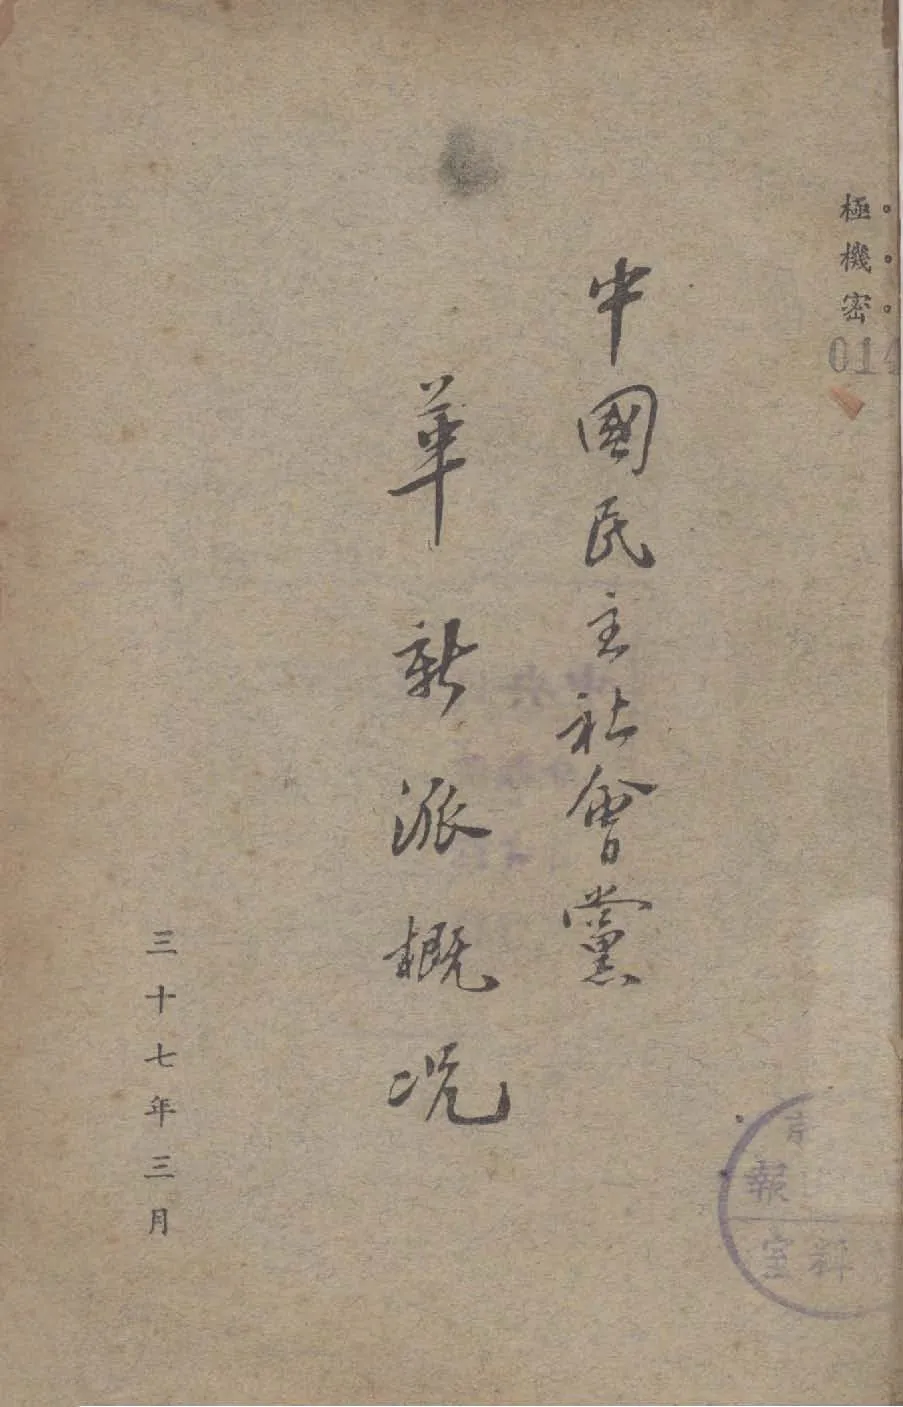 極機密
014
中國民主社會黨
革新派概况
三十七年三月
報
料室